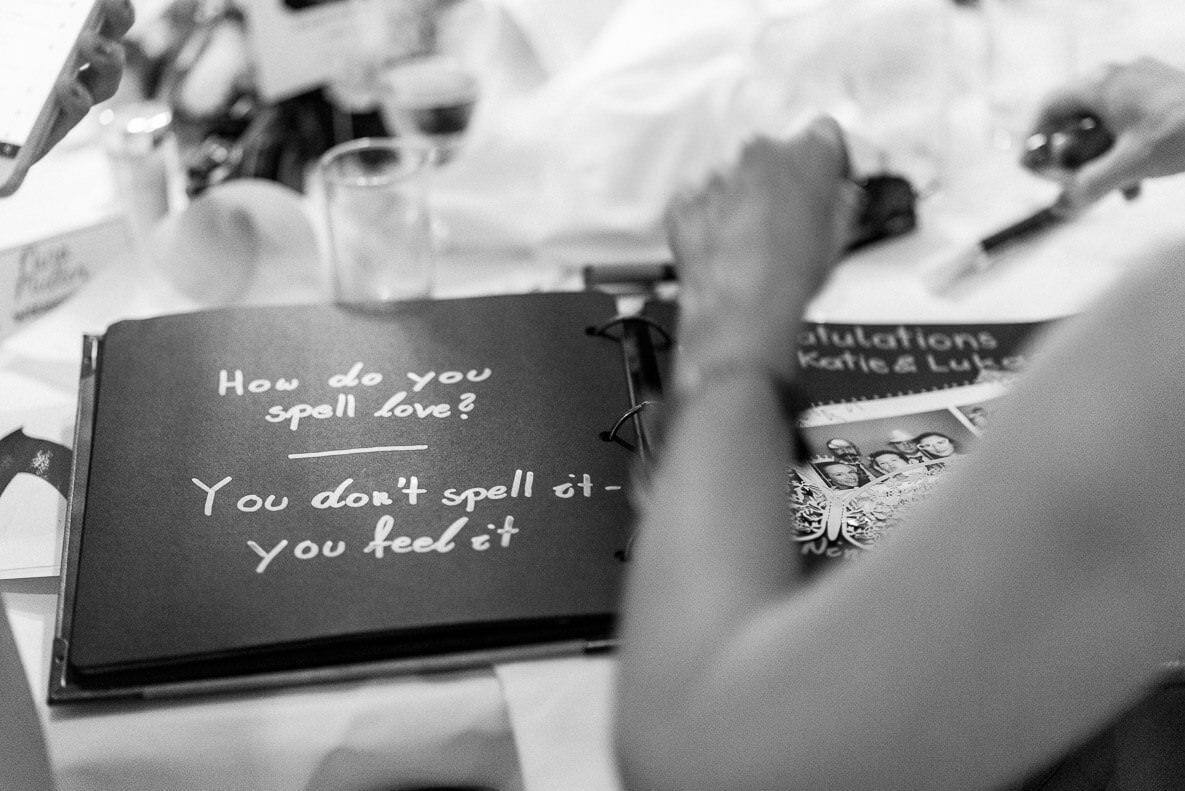 How do you
spell love?
You don't spell it-
you feel it
atulations
Katie & Luka